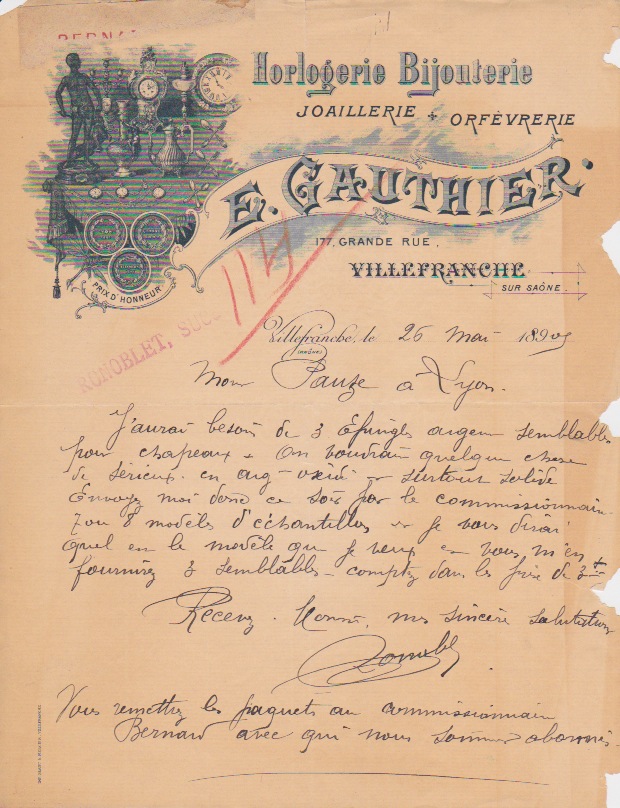 Horlogerie Bijouterie
JOAILLERIE + ORFÈVRERIE
E. GAUTHIER.
177, GRANDE RUE,
VILLEFRANCHE
SUR SAÔNE.
PRIX D'HONNEUR
114
RONOBLET, SUC
Villefranche, le 26 Mai 189
(RHÔNE)
Monr Pauze a Lyon.
J'aurai besoin de 3 Epingles argent semblables
pour chapeaux + On voudrait quelque chose
de sérieux en arg-oxidé surtout solide
Envoyez moi donc ce soir par le commissionnair
7 ou 8 modèles d'échantillons et je vous dirai
quel est le modèle que je veux et vous m'en
fournirez 3 semblables - comptez dans les prix de 3
Recevez. Monsr, mes sincère salutations
Ronoblet
Vous remettrez les paquets au commissionnair
Bernard avec qui nous sommes abonnés-